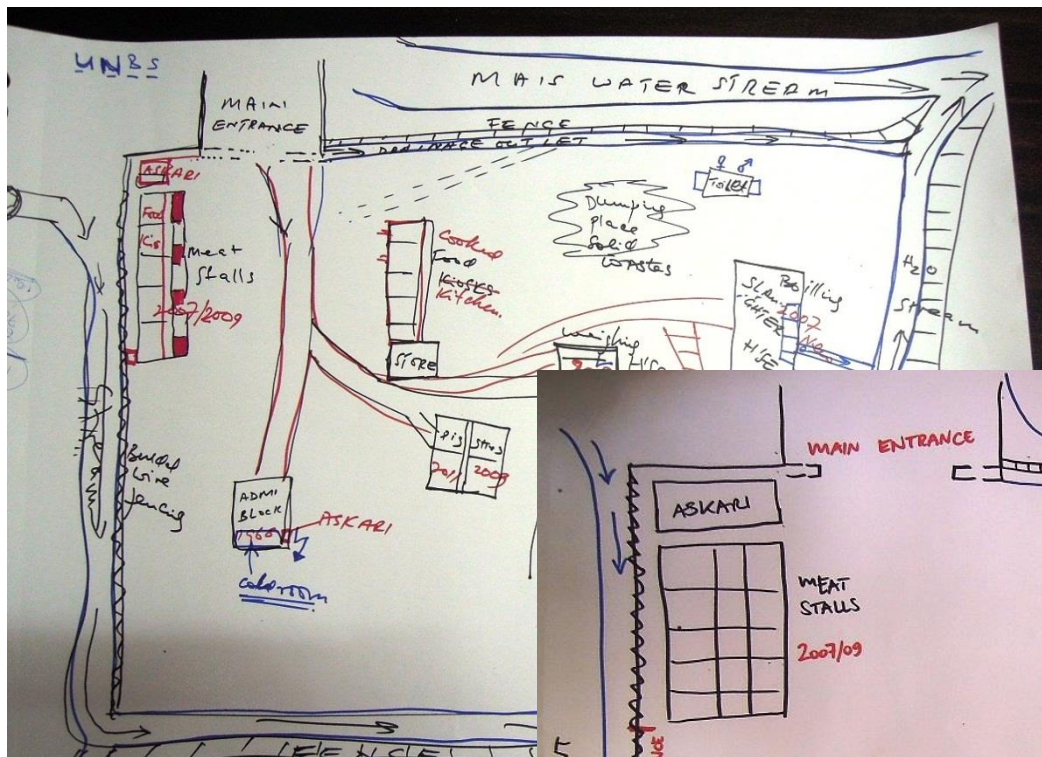 UNBS
MAIN
ENTRANCE
MAIS WATER STREAM
FENCE
DRAINAGE OUTLET
ASKARI
Food
Meat
Stalls
2007/2009
Cooked
Food
Kiosks
Kitchen.
STORE
Dumping
Place
Solid
WASTES
Toilet
Boilling
SLAU
GHTER
H'SE
2007
H2O
Stream
Weighing
H'se
Pig
Sties
2011
2009
Barbed
wire
fencing
ADMI
BLOCK
1968
ASKARI
Cold room
FENSE
MAIN ENTRANCE
ASKARI
MEAT
STALLS
2007/09